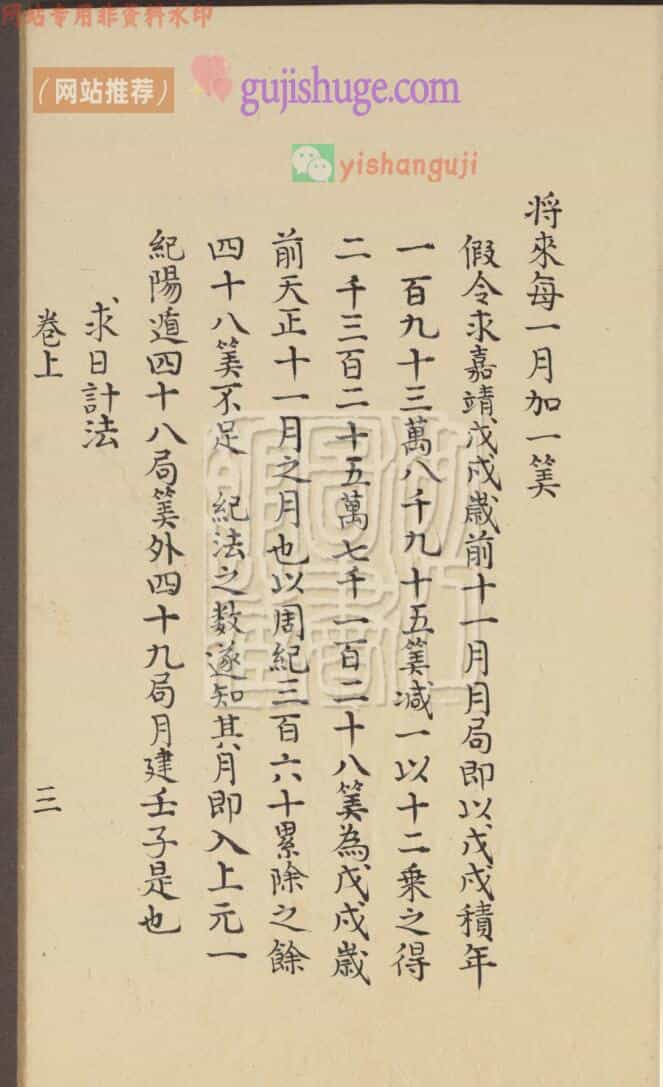 网站专用非资料水印
（网站推荐）
gujishuge.com
yishanguji
将來每一月加一筭
假令求嘉靖戊戌歲前十一月月局即以戊戌積年
一百九十三萬八千九十五筭減一以十二乗之得
二千三百二十五萬七千一百二十八筭為戊戌歲
前天正十一月之月也以周紀三百六十累除之餘
四十八筭不足 紀法之数遂知其月即入上元一
紀陽遁四十八局筭外四十九局月建壬子是也
求日計法
卷上
三